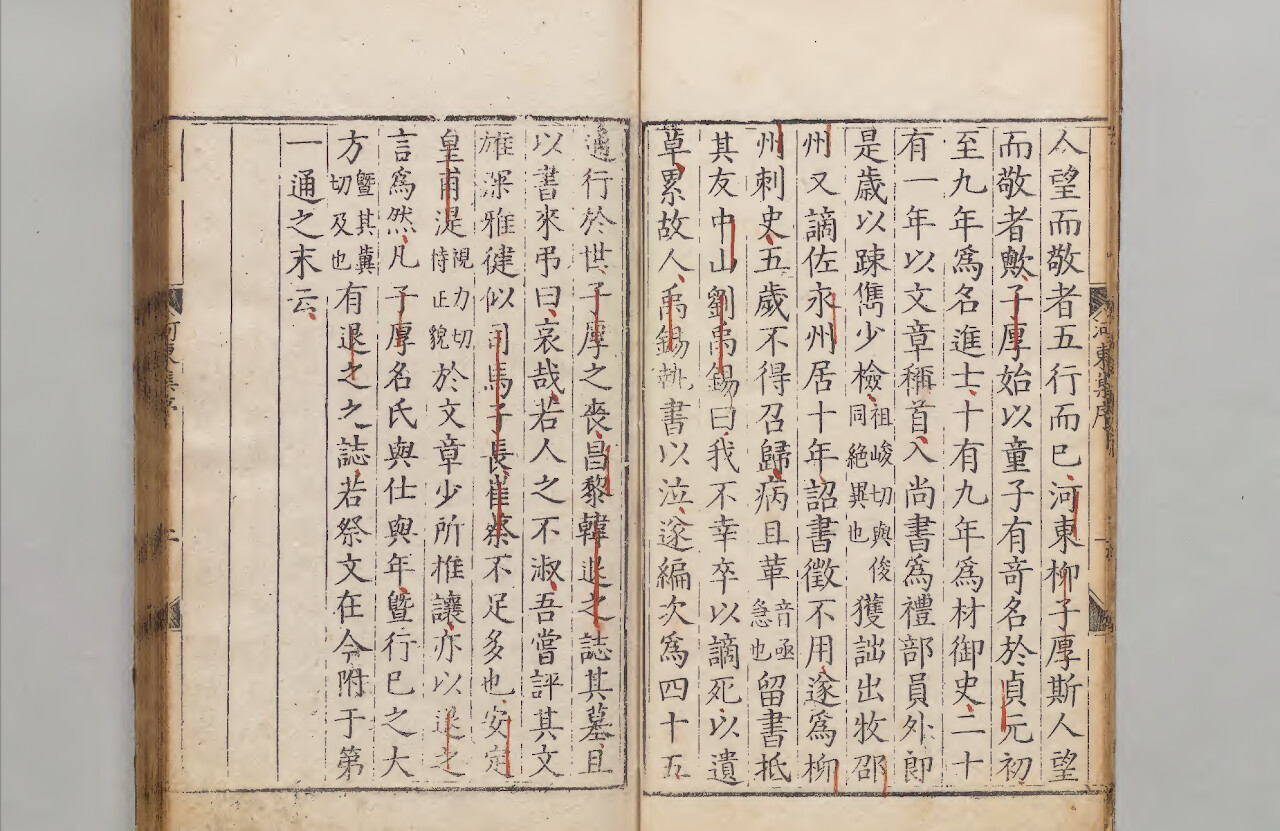 人望而敬者五行而已河東柳子厚斯人望
而敬者歟子厚始以童子有奇名於貞元初
至九年爲名進士十有九年爲材御史二十
有一年以文章稱首入尚書爲禮部員外郎
是歲以踈儁少檢祖峻切與俊同絶異也獲詘出牧邵
州又謫佐永州居十年詔書徵不用遂爲柳
州刺史五歲不得召歸病且革音亟急也留書抵
其友中山劉禹錫曰我不幸卒以謫死以遺
草累故人禹錫執書以泣遂編次爲四十五
通行於世子厚之喪昌黎韓退之誌其墓且
以書來弔曰哀哉若人之不淑吾嘗評其文
雄深雅健似司馬子長崔蔡不足多也安定
皇甫湜視力切恃正貌於文章少所推讓亦以退之
言爲然凡子厚名氏與仕與年曁行已之大
方曁其冀切及也有退之之誌若祭文在今附于第
一通之末云
河東集序
一
河東集序